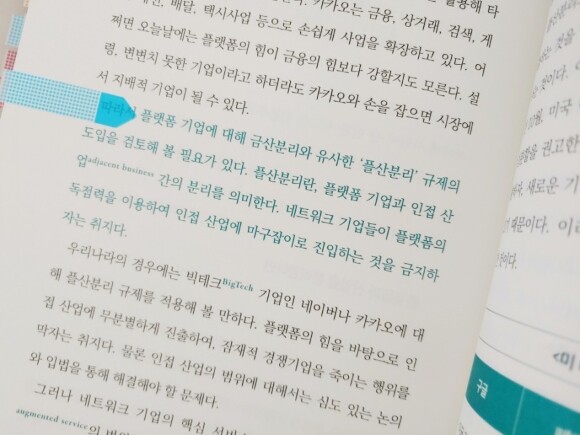 배달, 택시사업 등으로 손쉽게 사업을 확장하고 있다. 어
카카오는 금융, 상거래, 검색, 게
쩌면 오늘날에는 플랫폼의 힘이 금융의 힘보다 강할지도 모른다. 설
령, 변변치 못한 기업이라고 하더라도 카카오와 손을 잡으면 시장에
서 지배적 기업이 될 수 있다.
따라서 플랫폼 기업에 대해 금산분리와 유사한 ‘플산분리’ 규제의
도입을 검토해 볼 필요가 있다. 플산분리란, 플랫폼 기업과 인접 산
업adjacent business 간의 분리를 의미한다. 네트워크 기업들이 플랫폼의
독점력을 이용하여 인접 산업에 마구잡이로 진입하는 것을 금지하
자는 취지다.
우리나라의 경우에는 빅테크BigTech 기업인 네이버나 카카오에 대
해 플산분리 규제를 적용해 볼 만하다. 플랫폼의 힘을 바탕으로 인
접 산업에 무분별하게 진출하여, 잠재적 경쟁기업을 죽이는 행위를
막자는 취지다. 물론 인접 산업의 범위에 대해서는 심도 있는 논의
와 입법을 통해 해결해야 할 문제다.
그러나 네트워크 기업의 핵심
augmented service의
것이다.
미국
권고한
새로운 기
때문이다.
구글